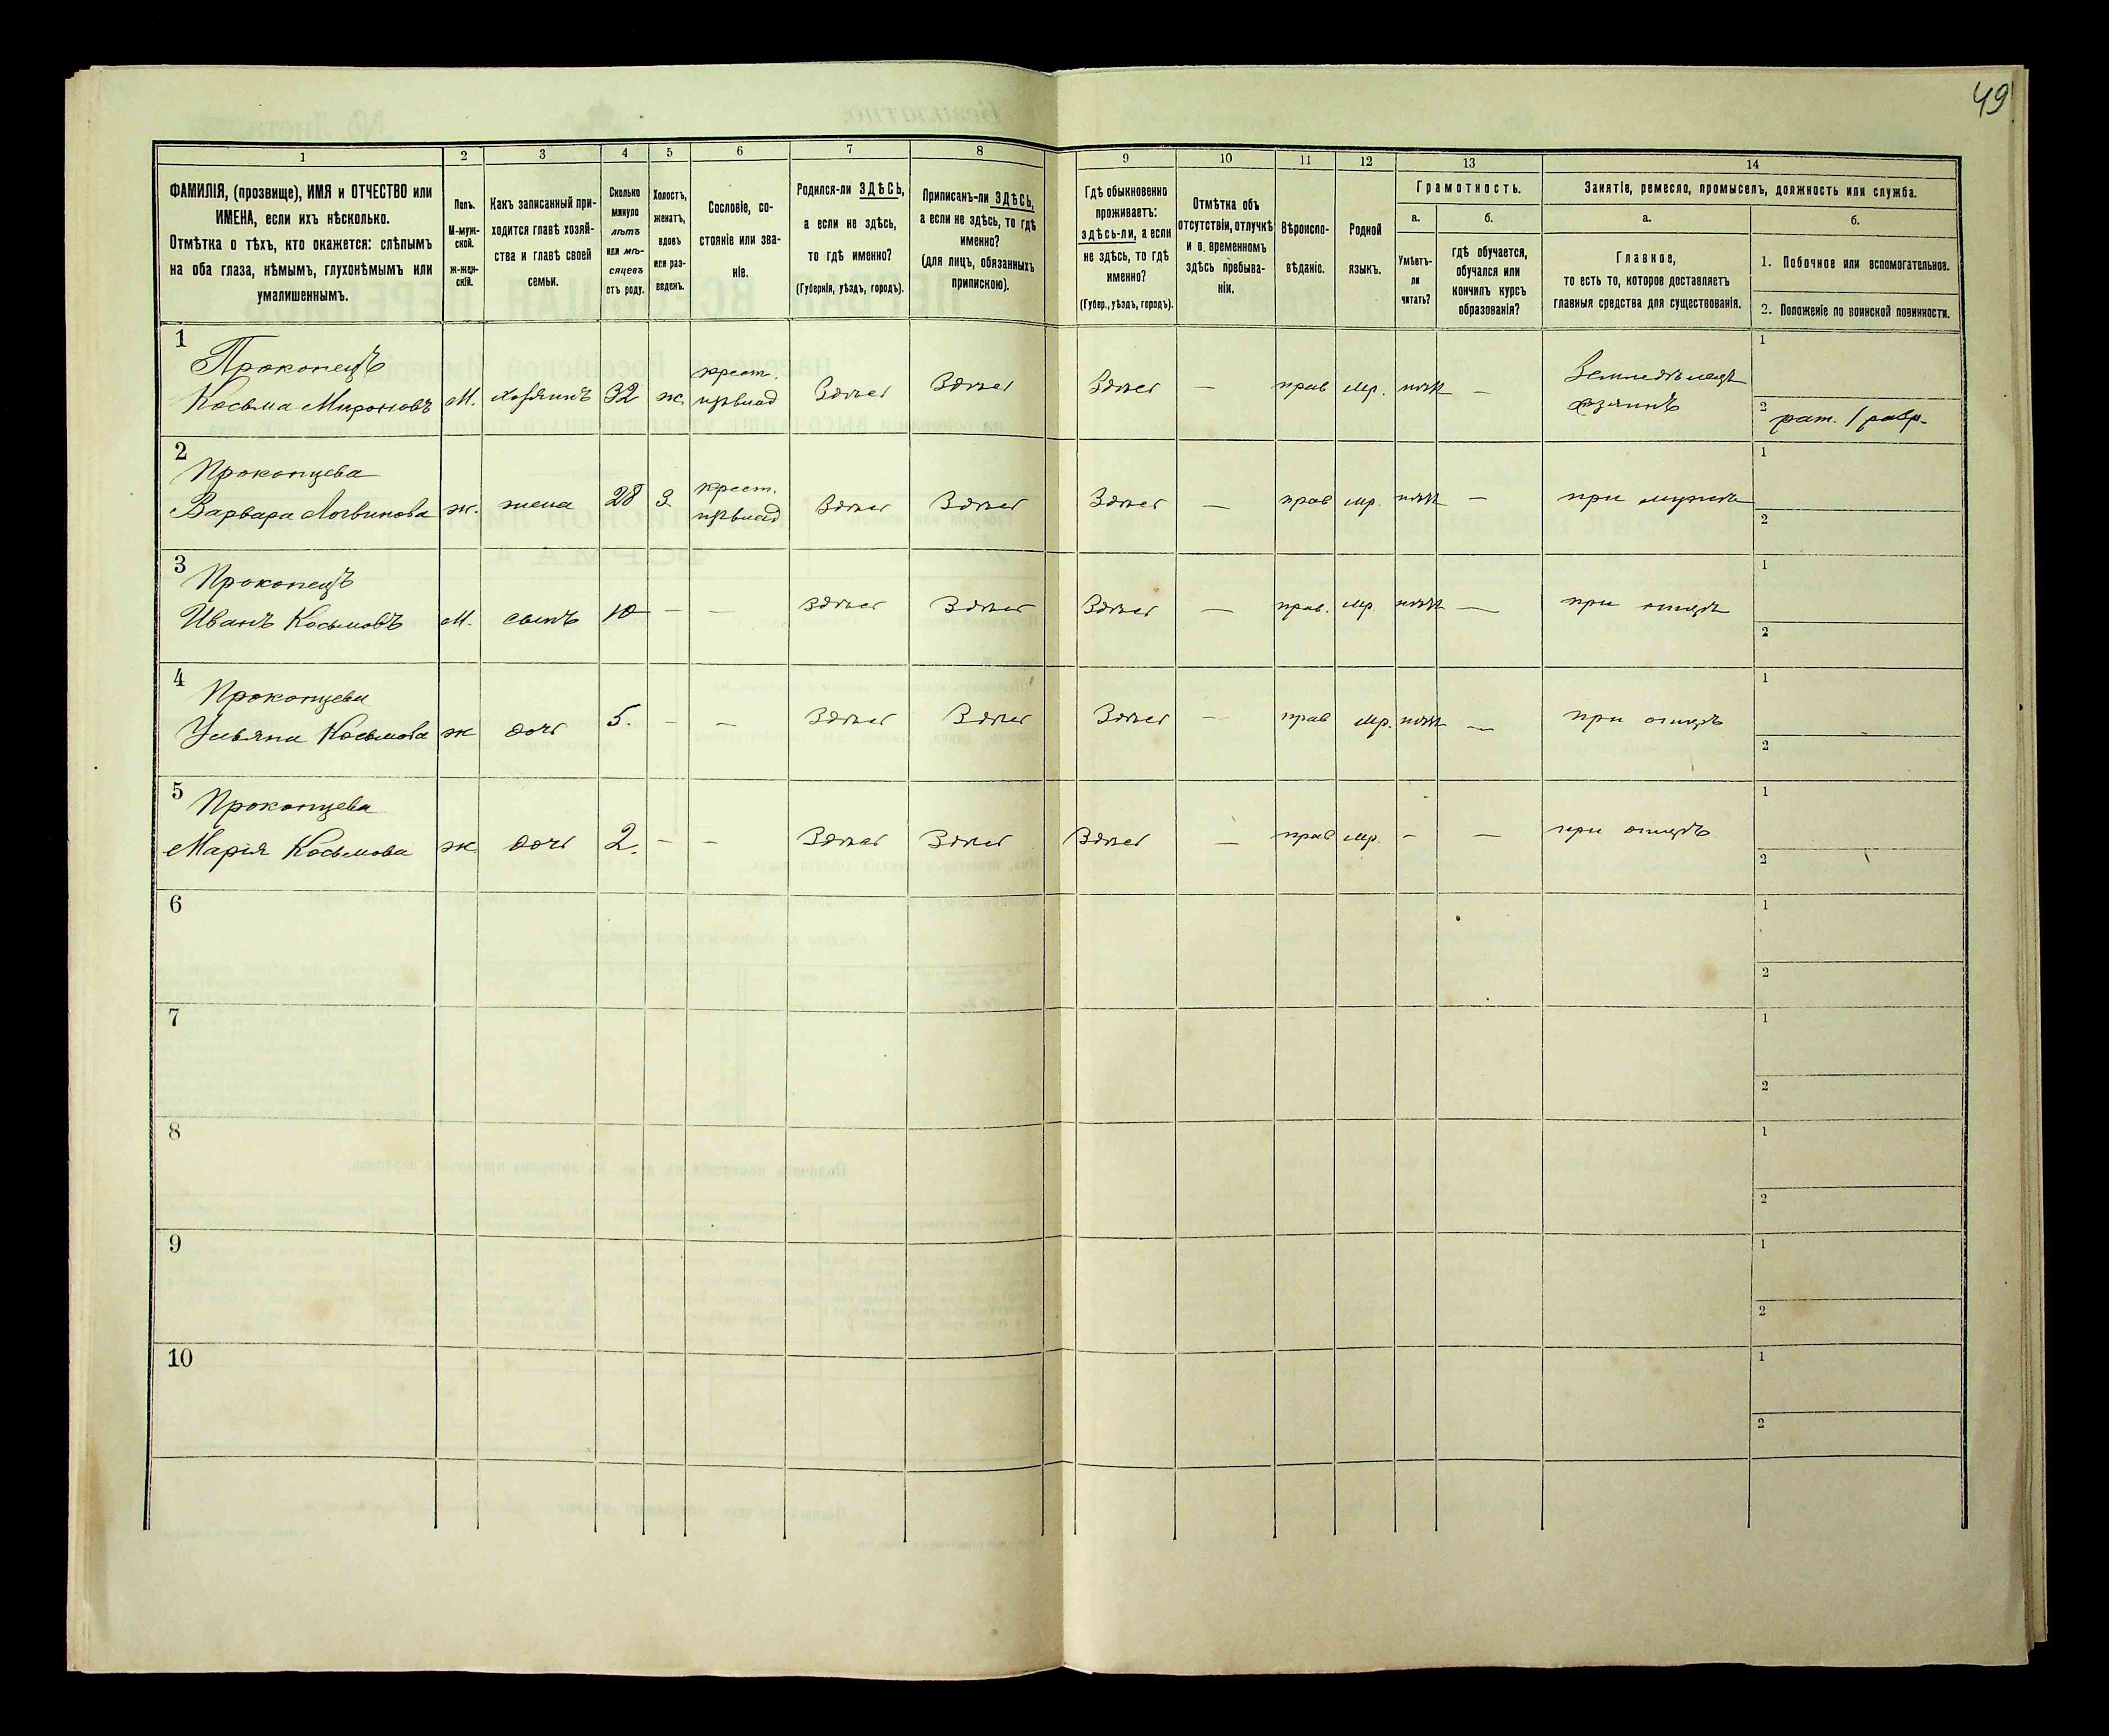 49
1
2
3
4
5
6
7
8
9
10
11
12
13
14
ФАМИЛІЯ, (прозвище), ИМЯ и ОТЧЕСТВО или
ИМЕНА, если ихъ нѣсколько.
Отмѣтка о тѣхъ, кто окажется: слѣпымъ
на оба глаза, нѣмымъ, глухонѣмымъ или
умалишеннымъ.
Полъ.
М-муж-
ской.
ж-жен-
скій.
Какъ записанный при-
ходится главѣ хозяй-
ства и главѣ своей
семьи.
Сколько
минуло
лѣтъ
или мѣ-
сяцевъ
отъ роду.
Холостъ,
женатъ,
вдовъ
или раз-
веденъ.
Сословіе, со-
стояніе или зва-
ніе.
Родился-ли ЗДѢСЬ,
а если не здѣсь,
то гдѣ именно?
(Губернія, уѣздъ, городъ).
Приписанъ-ли ЗДѢСЬ,
а если не здѣсь, то гдѣ
именно?
(для лицъ, обязанныхъ
припискою).
Гдѣ обыкновенно
проживаетъ:
здѣсь-ли, а если
не здѣсь, то гдѣ
именно?
(Губер., уѣздъ, городъ).
Отмѣтка объ
отсутствіи, отлучкѣ
и о временномъ
здѣсь пребыва-
ніи.
Вѣроиспо-
вѣданіе.
Родной
языкъ.
Грамотность.
а.
б.
Умѣетъ-
ли
читать?
гдѣ обучается,
обучался или
кончилъ курсъ
образованія?
Занятіе, ремесло, промыселъ, должность или служба.
а.
б.
Главное,
то есть то, которое доставляетъ
главныя средства для существованія.
1. Побочное или вспомогательное.
2. Положеніе по воинской повинности.
1
Прокопецъ
Косьма Мироновъ М. хозяинъ 32 ж. крест. Здѣсь Здѣсь Здѣсь — прав мр. нѣтъ — Земледѣлецъ
хозяинъ
1
2 рат. 1 разр.
2
Прокопцева
Варвара Логвинова ж. жена 28 З. крест. Здѣсь Здѣсь Здѣсь — прав мр. нѣтъ — при мужѣ
1
2
3
Прокопецъ
Иванъ Косьмовъ М. сынъ 10 — — Здѣсь Здѣсь Здѣсь — прав. мр. нѣтъ — при отцѣ
1
2
4
Прокопцева
Ульяна Косьмова ж дочь 5. — — Здѣсь Здѣсь Здѣсь — прав мр. нѣтъ — при отцѣ
1
2
5
Прокопцева
Марія Косьмова ж. дочь 2. — — Здѣсь Здѣсь Здѣсь — прав мр. — — при отцѣ
1
2
6
1
2
7
1
2
8
1
2
9
1
2
10
1
2